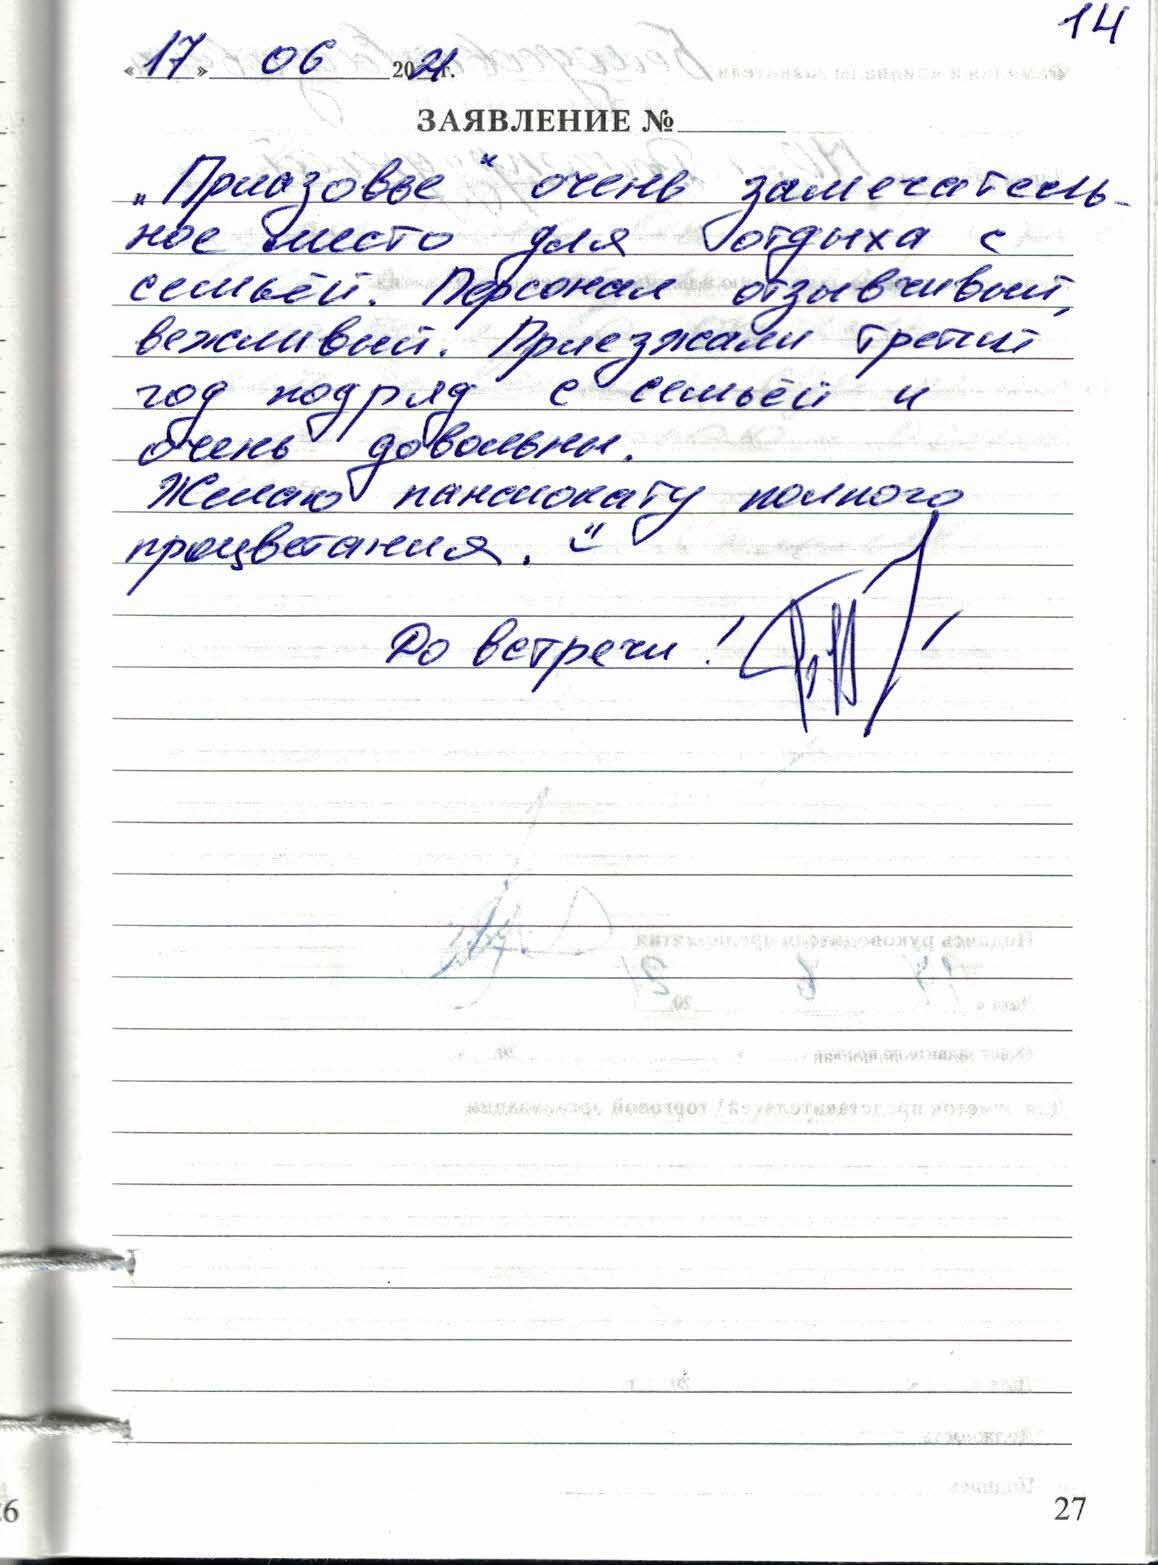 14
«17» 06 2021г.
ЗАЯВЛЕНИЕ №
„Приазовье" очень замечатель-
ное место для отдыха с
семьёй. Персонал отзывчивый,
вежливый. Приезжали третий
год подряд с семьёй и
очень довольны.
Желаю пансионату полного
процветания.
До встречи!
Подпись руководителя предприятия
27